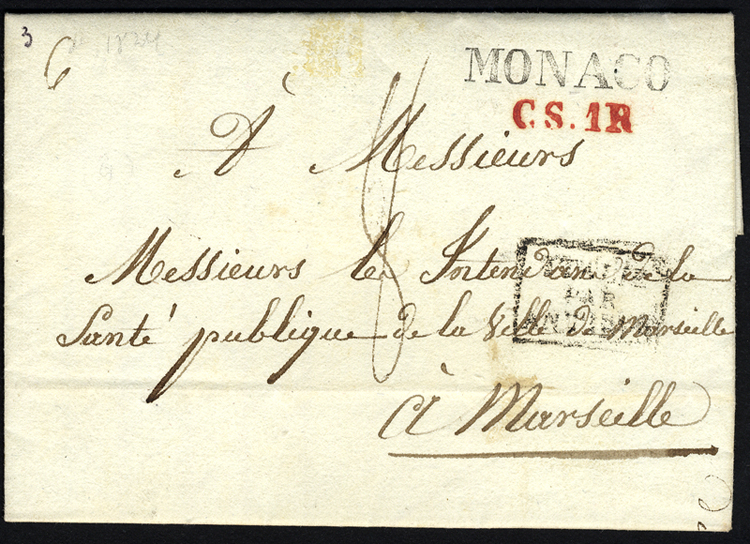 3
1824
6
MONACO
C.S.1R
À Messieurs
8
Messieurs les Intendans de la
PAR
Santé publique de la Ville De Marseille
à Marseille